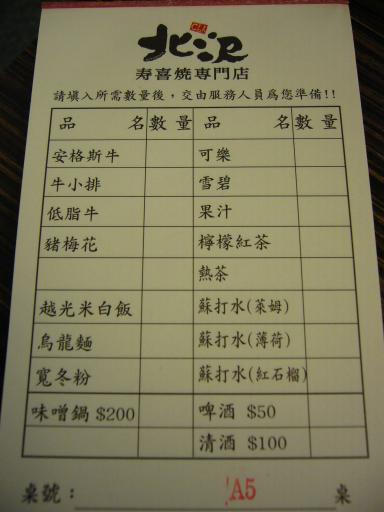 北沢
寿喜燒専門店
請填入所需數量後，交由服務人員為您準備!!
品 名 數 量 品 名 數 量
安格斯牛 可樂
牛小排 雪碧
低脂牛 果汁
豬梅花 檸檬紅茶
熱茶
越光米白飯 蘇打水(萊姆)
烏龍麵 蘇打水(薄荷)
寬冬粉 蘇打水(紅石榴)
味噌鍋 $200 啤酒 $50
清酒 $100
桌號： A5 桌